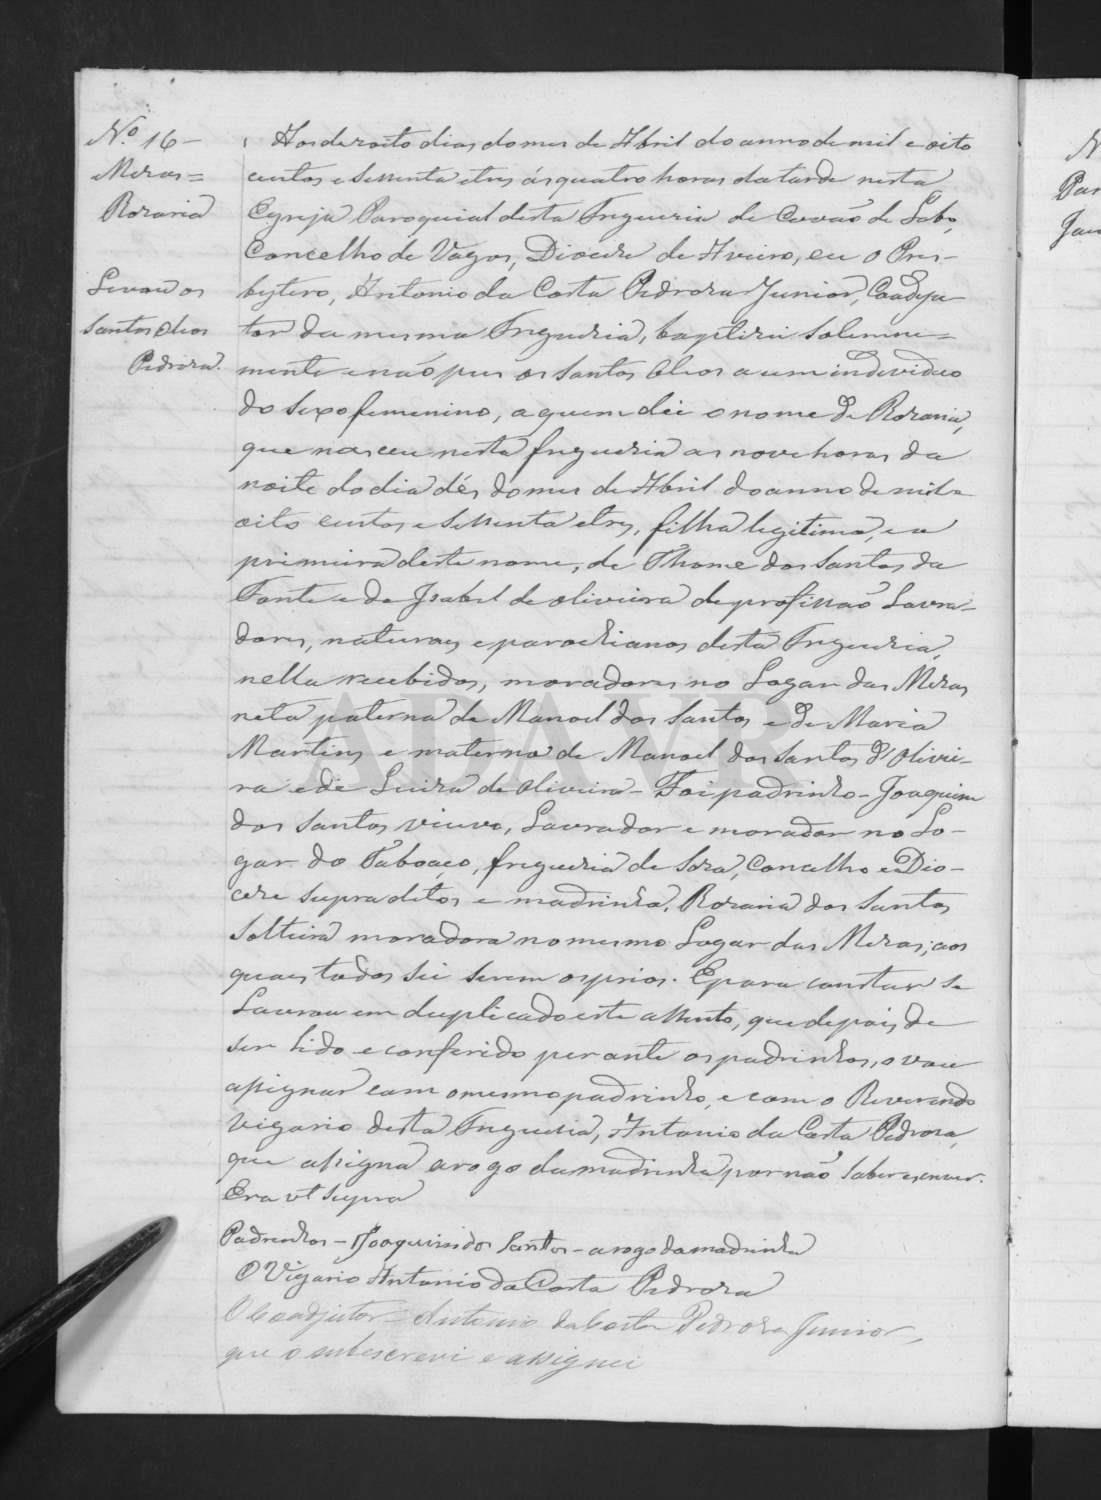 Nº 16 -
Mesas =
Rozaria
Levou os
Santos Oleos
Pedroza.
Aos dezoito dias do mes de Abril do anno de mil e oito
centos e sessenta e tres ás quatro horas da tarde nesta
Egreja Paroquial desta Freguezia de Covão do Lobo,
Concelho de Vagos, Diocese de Aveiro, eu o Pres-
bytero, Antonio da Costa Pedroza Junior, Coadju-
tor da mesma Freguezia, baptizei solemne=
mente e não pus os santos Oleos a um individuo
do sexo femenino, a quem dei o nome de Rozaria,
que nasceu nesta freguezia as nove horas da
noite do dia dés do mes de Abril do anno de mil e
oito centos e sessenta e tres, filha legitima, e a
primeira deste nome, de Thome dos Santos da
Fonte e de Isabel de Oliveira de profissão Lavra-
dores, naturaes e parochianos desta Freguezia,
nella recebidos, moradores no Logar das Mesas,
neta paterna de Manoel dos Santos e de Maria
Martins e materna de Manoel dos Santos d'Olivei-
ra e de Luiza de Oliveira - Foi padrinho - Joaquim
dos Santos viuvo, Lavrador e morador no Lo-
gar do Taboaço, freguezia de Soza, Concelho e Dio-
cese supra ditos e madrinha, Rozaria dos Santos
Solteira moradora no mesmo Logar das Mesas, aos
quaes todos sei serem os proprios. E para constar se
Lavrou em duplicado este assento, que depois de
ser lido e conferido perante os padrinhos, o vou
assignar com o mesmo padrinho, e com o Reverendo
Vigario desta Freguezia, Antonio da Costa Pedroza,
que assigna a rogo da madrinha por não saber escrever.
Era ut supra
Padrinhos - Joaquim dos Santos - a rogo da madrinha
O Vigario Antonio da Costa Pedroza
O Coadjutor - Antonio da Costa Pedroza Junior,
que o subescrevi e assignei
ADAVR